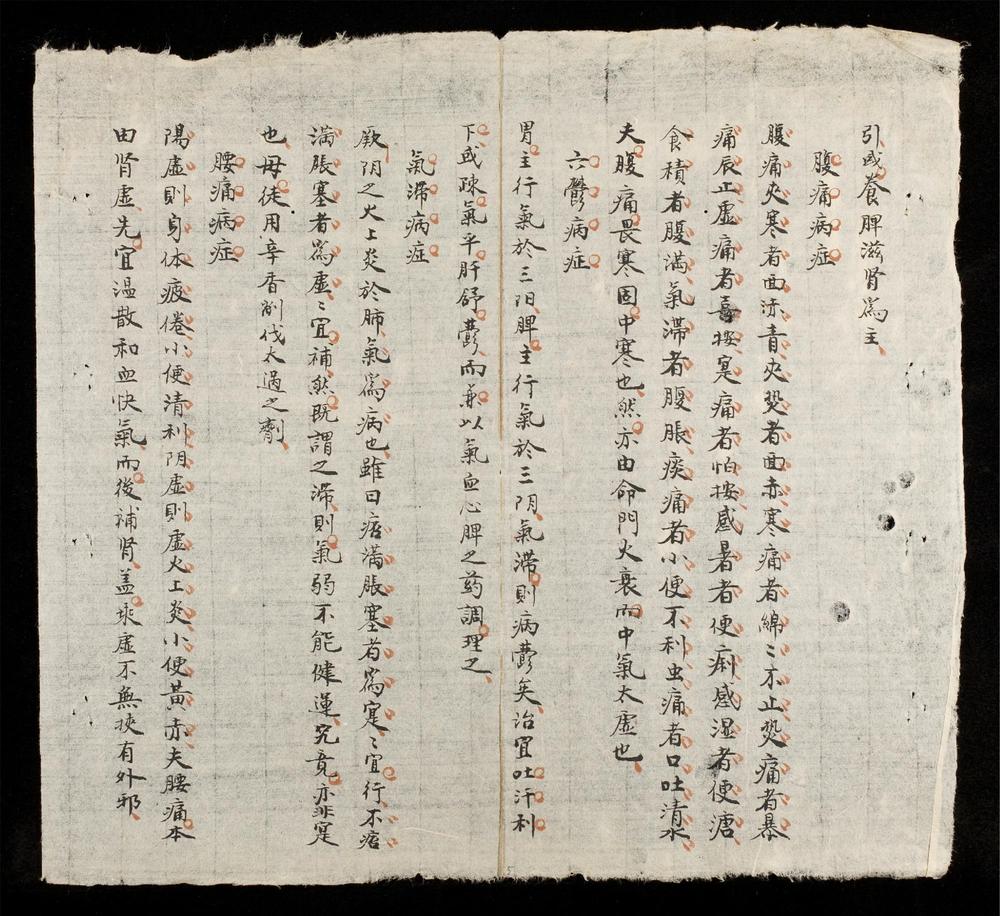 引或養脾滋肾為主
腹痛病症
腹痛夾寒者面赤青夾熱者面赤寒痛者綿〻不止熱痛者暴
痛辰止虚痛者喜按寔痛者怕按感暑者便痢感湿者便溏
食積者腹滿氣滞者腹脹痰痛者小便不利虫痛者口吐清水
夫腹痛畏寒固中寒也然亦由命門火衰而中氣大虚也
六鬱病症
胃主行氣於三阳脾主行氣於三阴氣滞則病鬱矣治宜吐汗利
下或疎氣平肝舒鬱而兼以氣血心脾之药調理之
氣滞病症
厥阴之火上炎於肺氣為病也雖曰痞滿脹塞者為寔〻宜行不痞
滿脹塞者為虚〻宜補然既謂之滞則氣弱不能健運究竟亦非寔
也毋徒用辛香削伐太過之劑
腰痛病症
陽虚則身体疲倦小便清利阴虚則虚火上炎小便黃赤夫腰痛本
由肾虚先宜温散和血快氣而後補肾盖乘虚不無挾有外邪